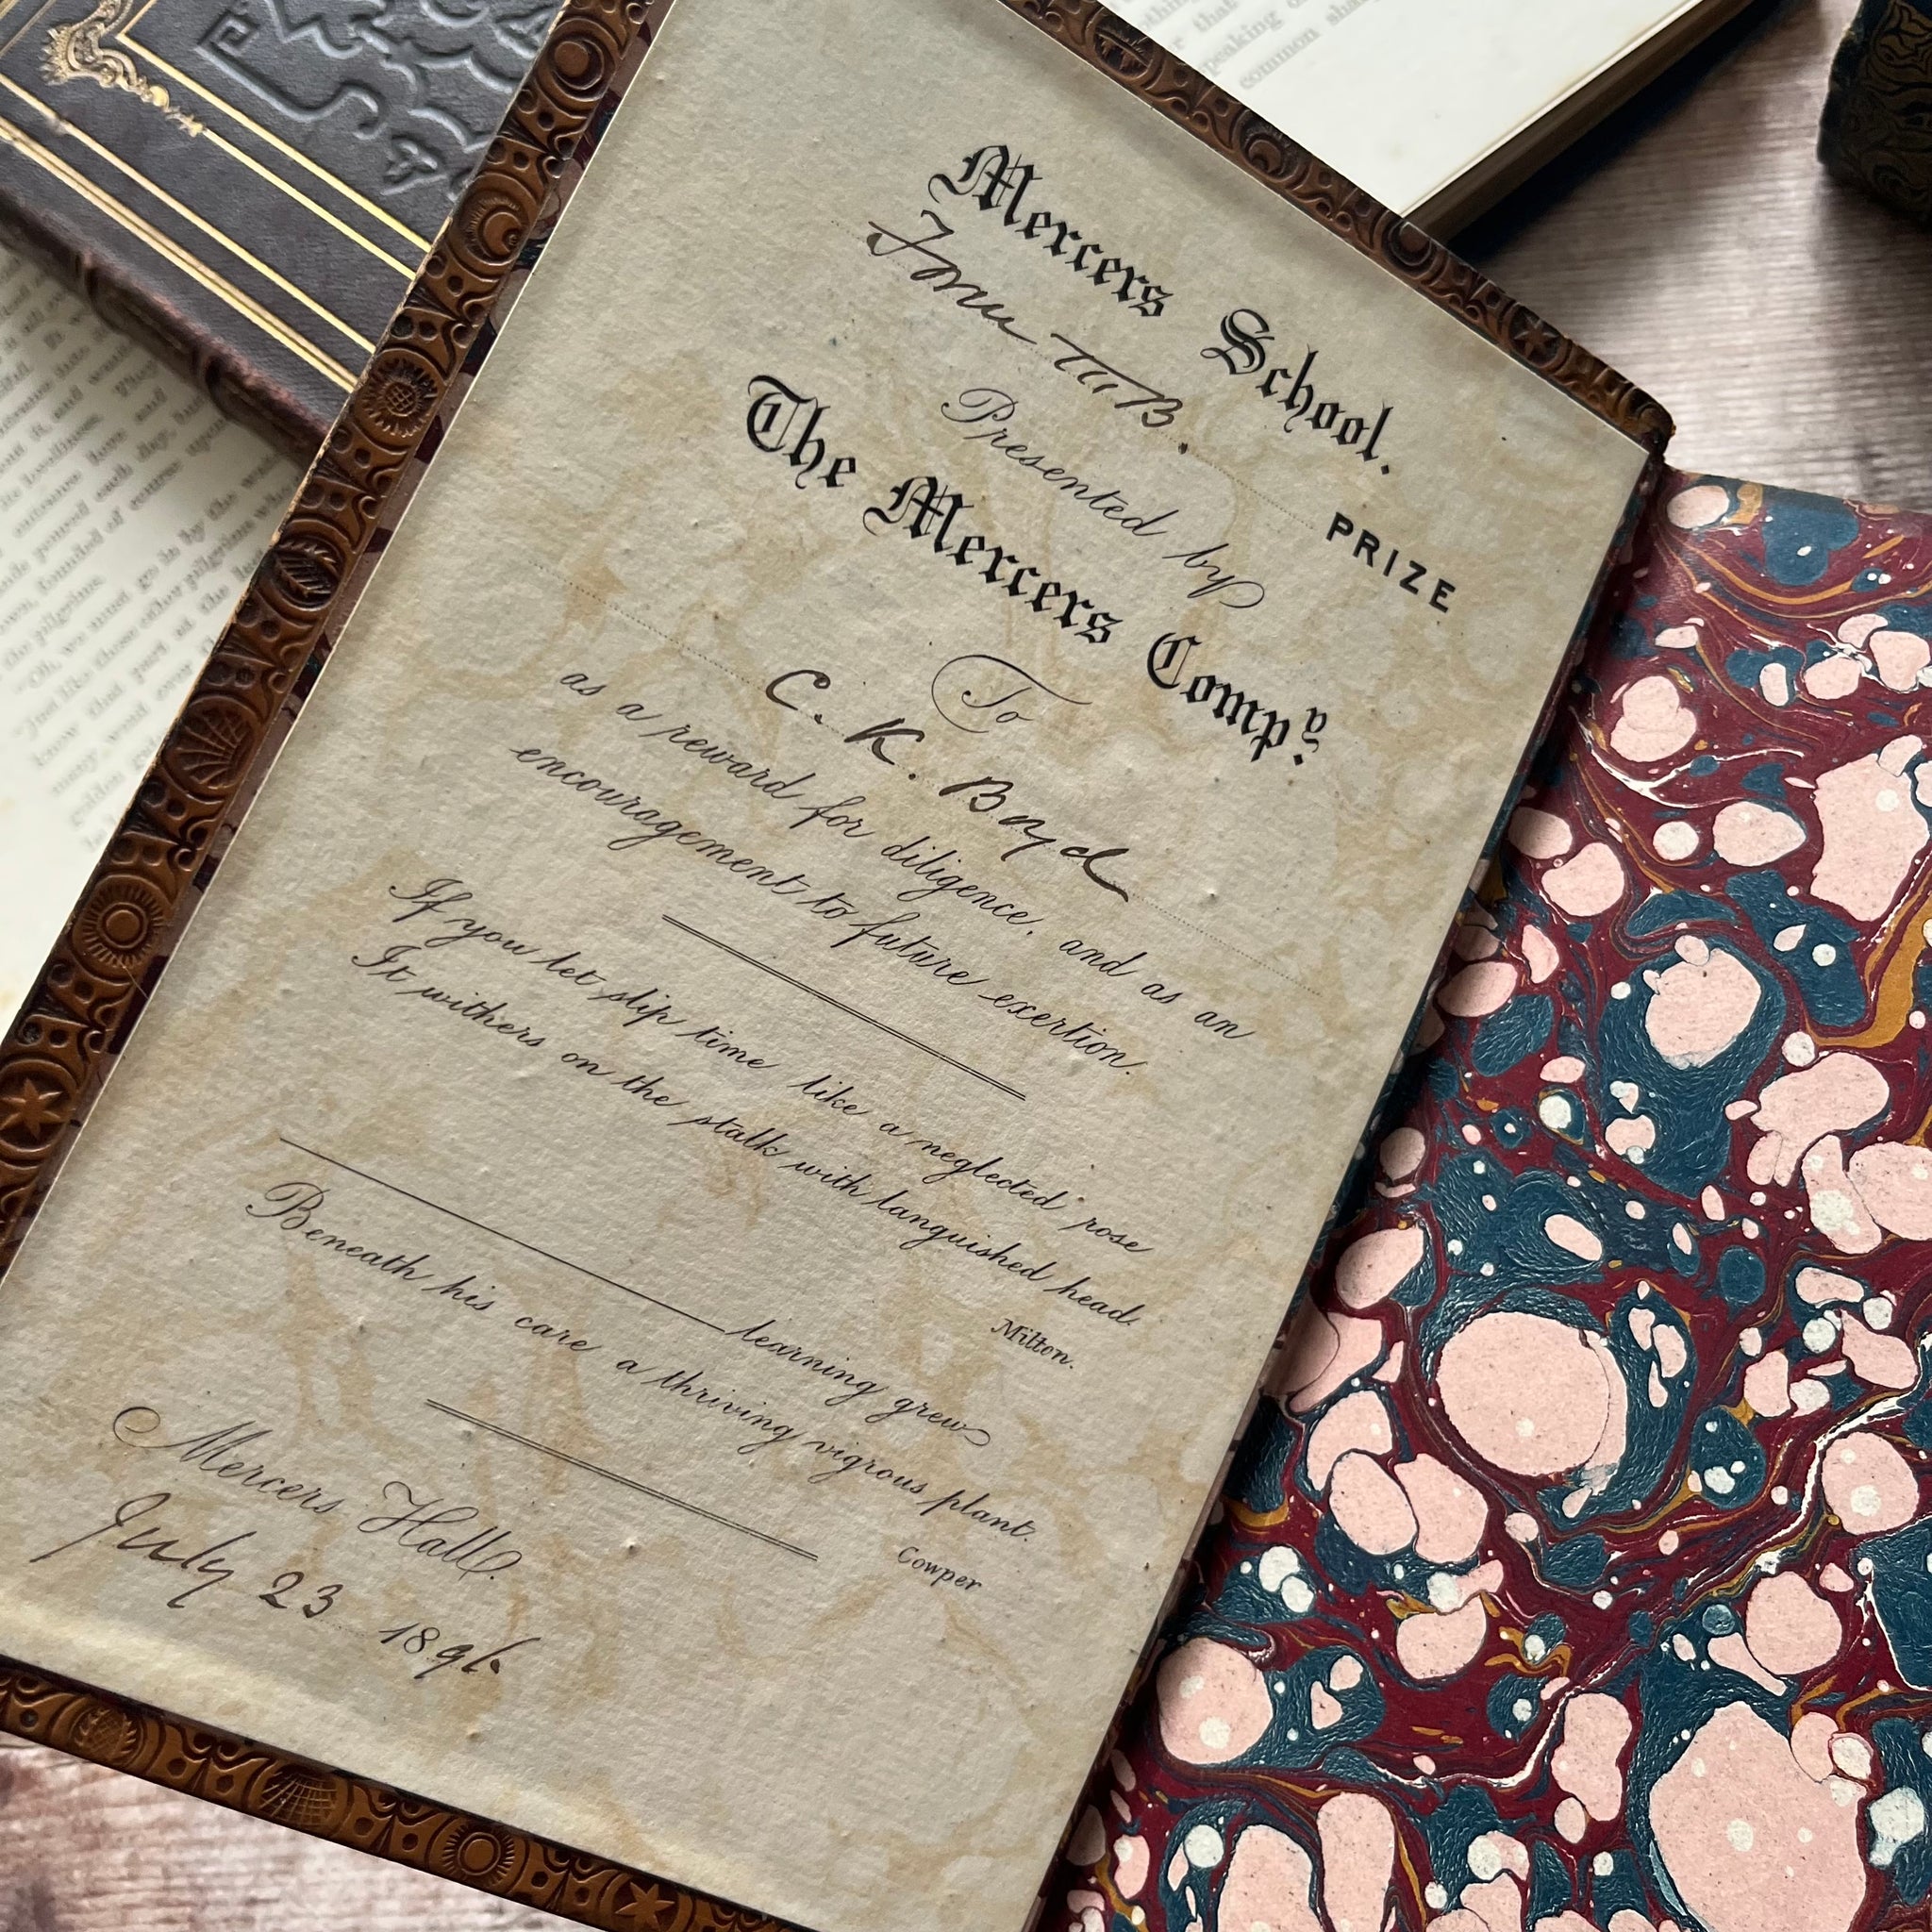 Mercers School.
Form III B. PRIZE
Presented by
The Mercers Compy.
To
C. K. Boyd
as a reward for diligence, and as an
encouragement to future exertion.
If you let slip time like a neglected rose
It withers on the stalk with languished head.
Milton.
learning grew
Beneath his care a thriving vigrous plant.
Cowper
Mercers Hall.
July 23 1896.